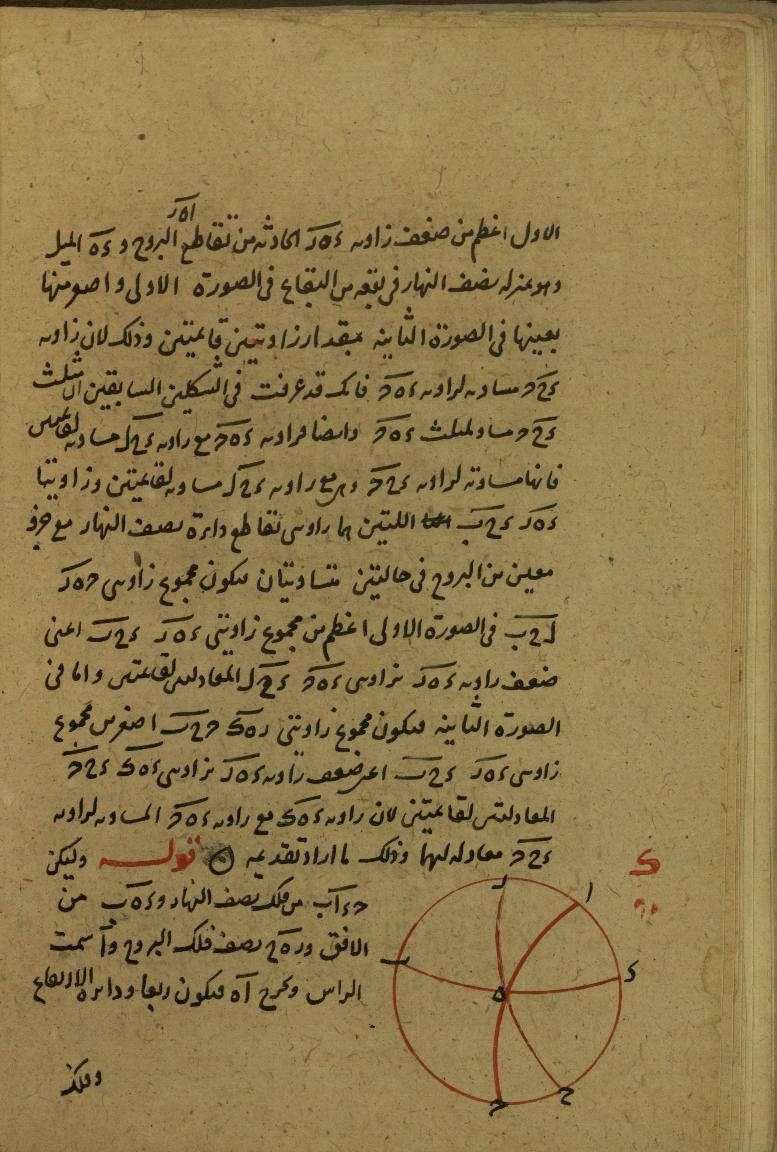 الاول اعظم من ضعف زاويه ءه‍ر الحادثه من تقاطع البروج و ءه الميل
وهو بمنزله نصف النهار فى بقعه من البقاع فى الصورة الاولى و اصغر منها
بعينها فى الصورة الثانيه بمقدار زاويتين قائمتين وذلك لان زاويه
ءح‍ح مساويه لزاويه ءه‍ح فانك قد عرفت فى الشكلين السابقين ان مثلث
ءح‍ح مساو لمثلث ءه‍ح وايضا فزاويه ءه‍ح مع زاويه ءح‍ك مساويه لقائمتين
فانها مساويه لزاويه ءح‍ح وهى مع زاويه ءح‍ك مساويه لقائمتين وزاويتا
ءه‍ر ءح‍ب اللتين هما زاويتى تقاطع دايرة نصف النهار مع جزو
معين من البروج فى حالتين متساويتان فيكون مجموع زاويتى
فى الصورة الاولى اعظم من مجموع زاويتى ءه‍ر ءح‍ب اعنى
ضعف زاويه ءه‍ر بزاويتى ءه‍ح ءح‍ك المعادلتين لقائمتين واما فى
الصورة الثانيه فيكون مجموع زاويتى اصغر من مجموع
زاويتى ءه‍ر ءح‍ب اعنى ضعف زاويه ءه‍ر بزاويتى ءه‍ك ءح‍ح
المعادلتين لقائمتين لان زاويه ءه‍ك مع زاويه ءه‍ح المساويه لزاويه
ءح‍ح معادله لهما وذلك ما اراد تقديمه قوله وليكن
من فلك نصف النهار و ءه‍ب من
الافق و ره‍ح نصف فلك البروج و ا سمت
الراس ونخرج اه فيكون ربعا ودايرة الارتفاع
وفلك